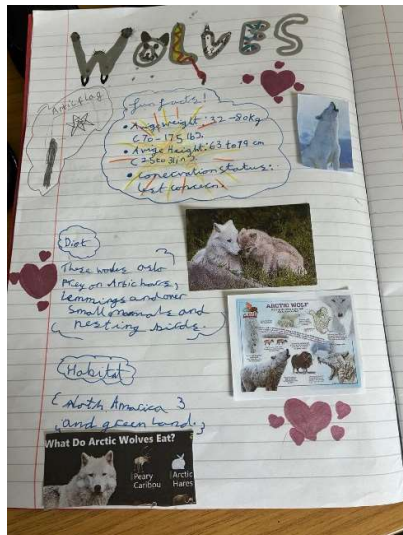 WOLVES
Articflag
fun facts!
• Avige weight: 32-80kg
(70-175 lbs.
• Avrige Height: 63 to 79 cm
(25 to 31 in).
• conecration status:
lest concern.
Diot
These wolves aslo
Prey on Artic hares,
Lemmings and over
Small mammals and
nestring birds.
Habitat
North Amarica
and green land.
ARCTIC WOLF
What Do Arctic Wolves Eat?
Peary
Caribou
Arctic
Hares